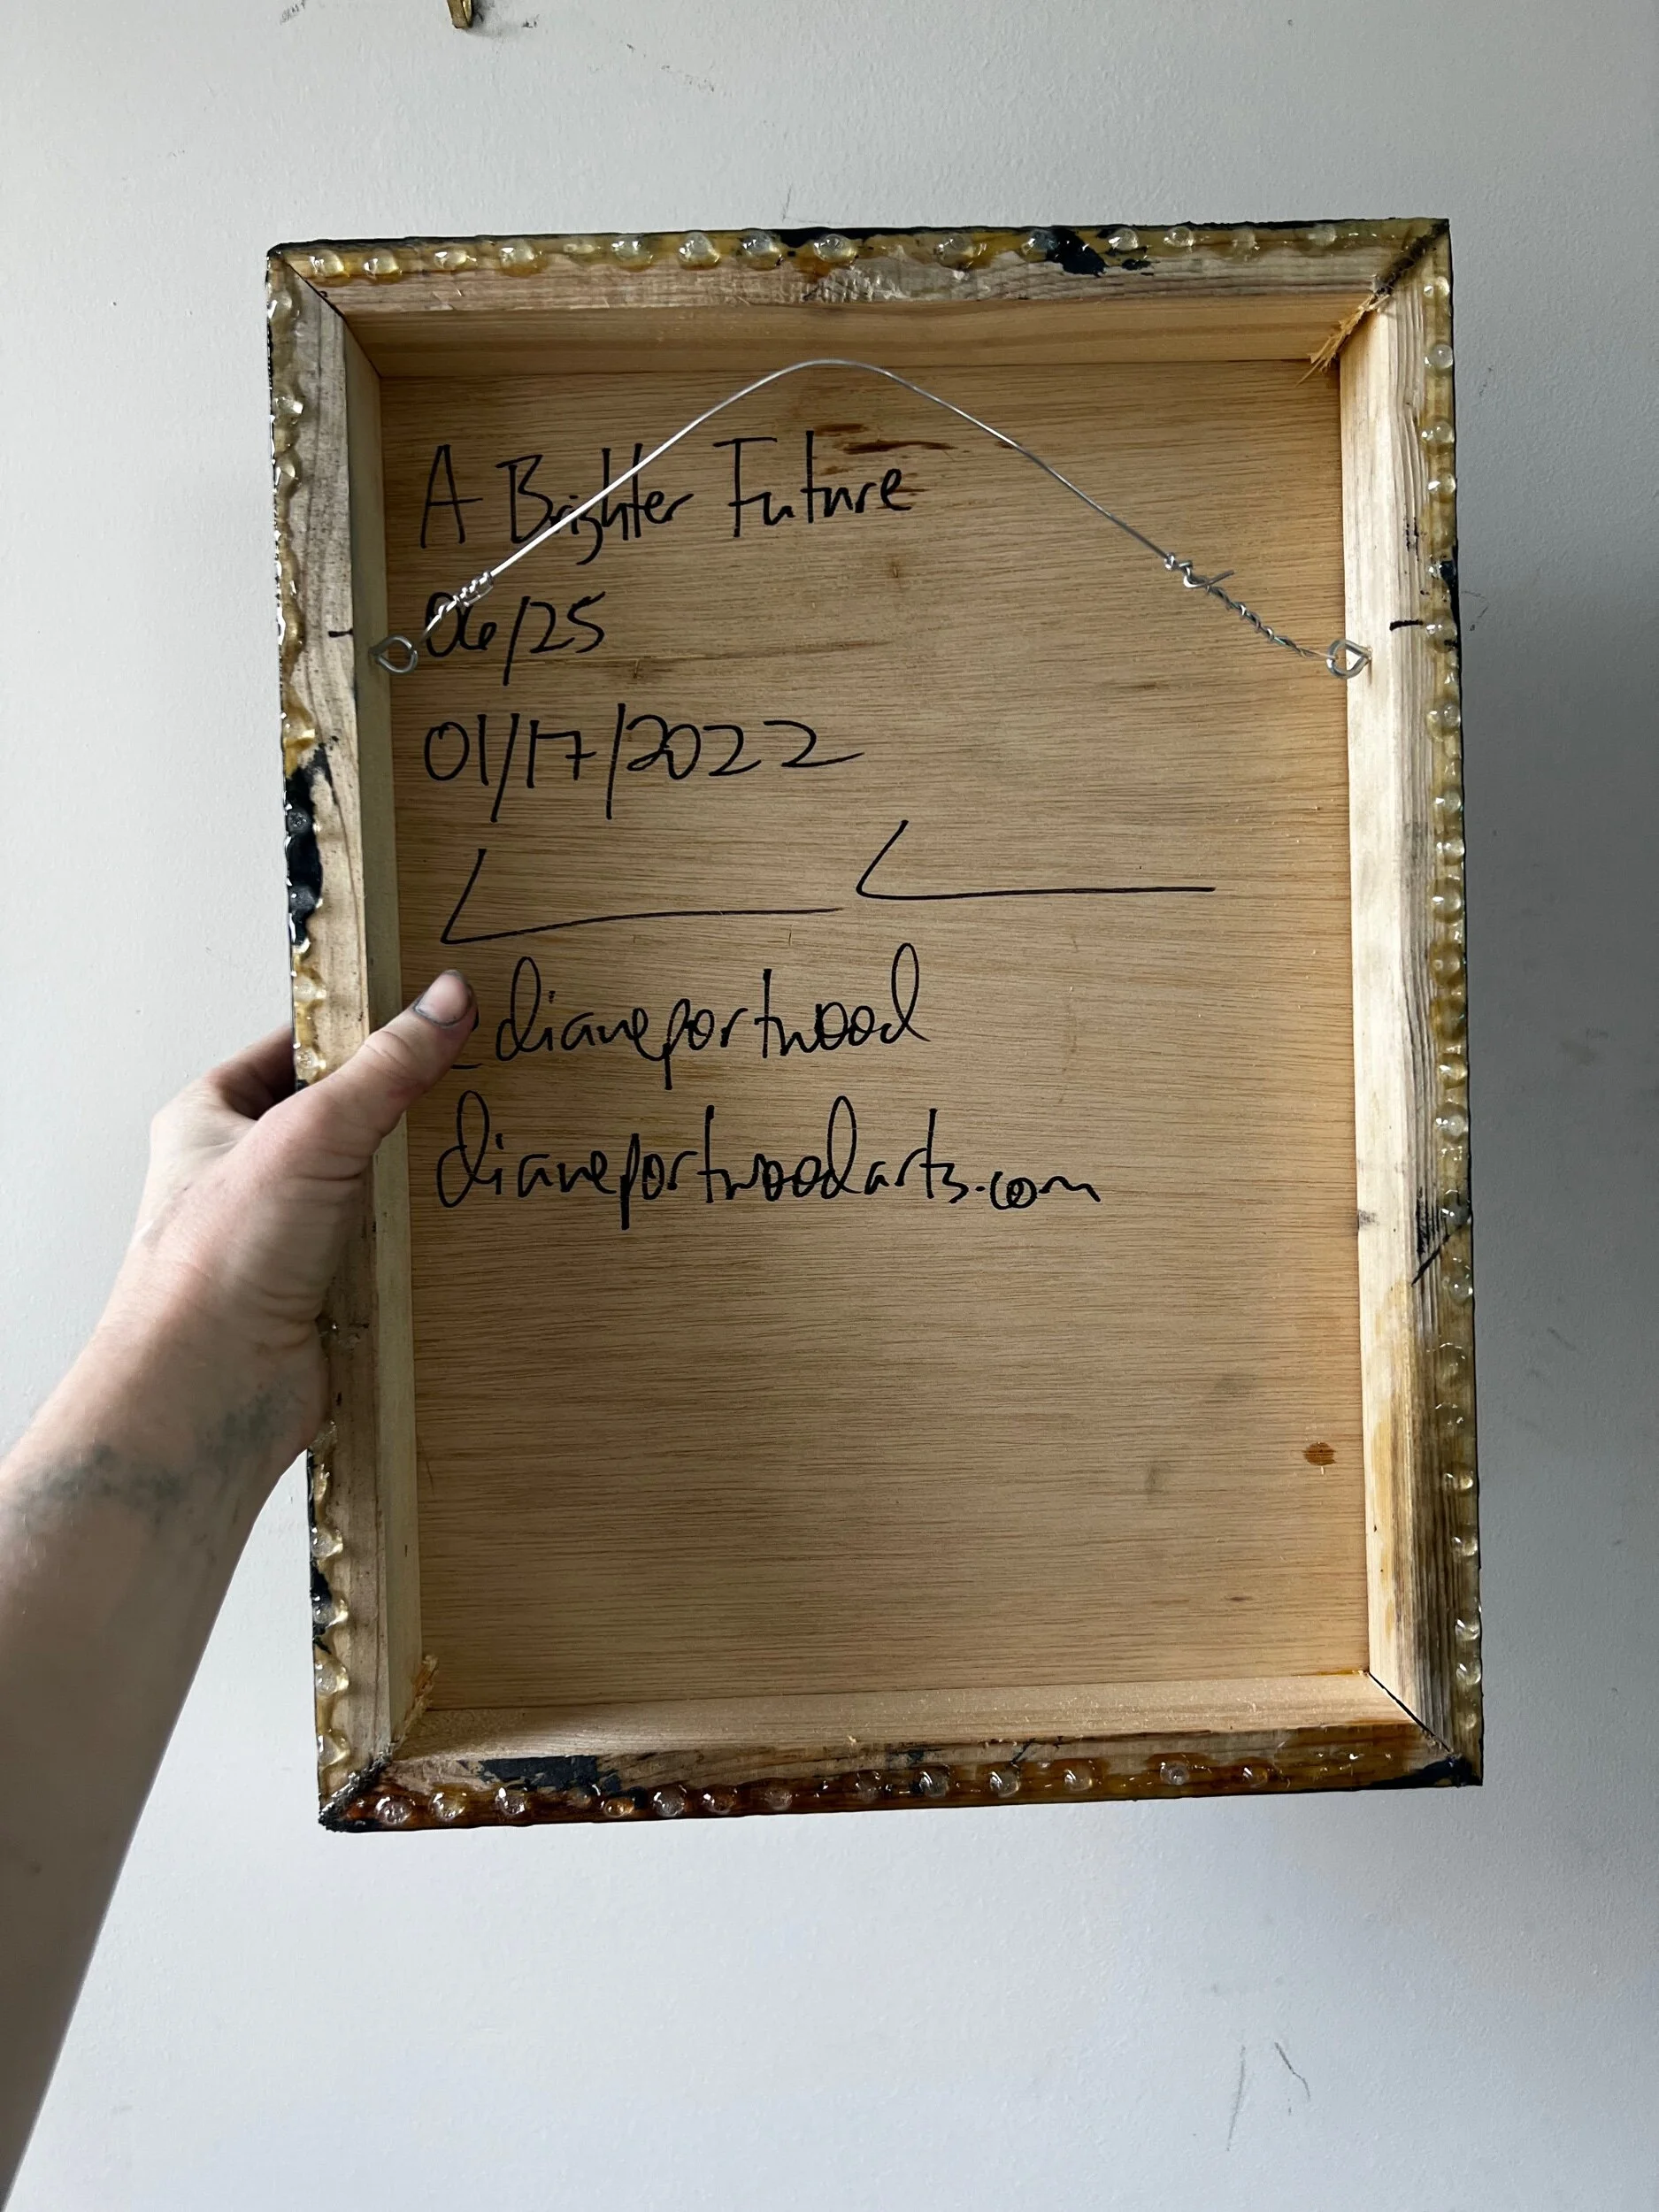 A Brighter Future
06/25
01/17/2022
@dianeportwood
dianeportwoodarts.com